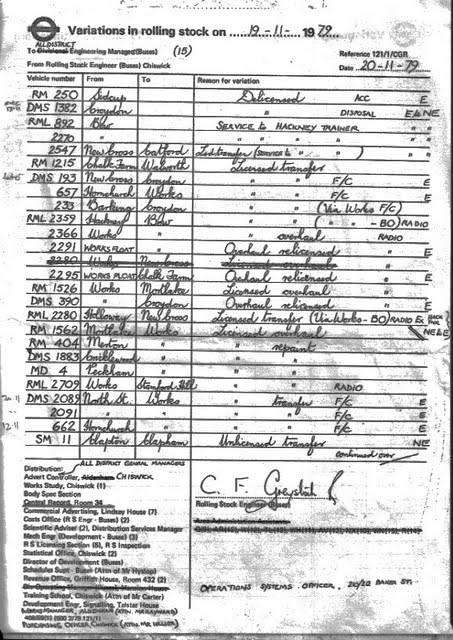 Variations in rolling stock on 19-11- 1979
ALL DISTRICT
To Divisional Engineering Managed (Buses) (15)
Reference 121/1/CGR
From Rolling Stock Engineer (Buses) Chiswick
Date 20-11-79
Vehicle number From To Reason for variation
RM 250 Sidcup Delicensed ACC E
DMS 1382 Croydon " DISPOSAL E&NE
RML 892 Bow SERVICE to HACKNEY TRAINER " "
2270 " " " " " "
2547 New Cross Catford Licd transfer (SERVICE to " ) " "
RM 1215 Chalk Farm Walworth Licensed transfer
DMS 193 New Cross Croydon " " F/C E
657 Hornchurch Works " " F/C E
233 Barking Croydon " " (Via Works F/C) E
RML 2359 Hackney Bow " " ( " " - BO) RADIO
2366 Works " " overhaul RADIO
2291 WORKS FLOAT " Overhaul relicensed E
2280 Works New Cross Licensed overhaul
2295 WORKS FLOAT Chalk Farm Overhaul relicensed E
RM 1526 Works Mortlake Licensed overhaul
DMS 390 " Croydon Overhaul relicensed E
RML 2280 Holloway New Cross Licensed transfer (Via Works - BO) RADIO Ex
RM 1562 Mortlake Works Licensed overhaul NE&E
RM 404 Merton " " repaint E
DMS 1883 Cricklewood " " " E
MD 4 Peckham " " " E
RML 2709 Works Stamford Hill " " RADIO
20-11 DMS 2089 North St. Works " transfer F/C E
2091 " " " " F/C E
12-11 662 Hornchurch " " " F/C E
SM 11 Clapton Clapham Unlicensed transfer NE
continued over
Distribution: ALL DISTRICT GENERAL MANAGERS
Advert Controller, Aldenham CHISWICK
Works Study, Chiswick (1)
Body Spec Section
Central Record, Room 34
Commercial Advertising, Lindsay House (7)
Costs Office (R S Engr - Buses) (2)
Scientific Adviser (2), Distribution Services Manager
Mech Engr (Development - Buses) (3)
R S Licensing Section (5), R S Inspection
Statistical Office, Chiswick (2)
Director of Development (Buses)
Schedules Supt - Buses (Attn of Mr Hyslop)
Revenue Office, Griffith House, Room 432 (2)
Training School, Chiswick (Attn of Mr Carter)
Development Engr, Signalling, Telstar House
Rolling Stock Engineer (Buses)
Area Administration Assistants
OPERATIONS SYSTEMS OFFICER, 20/22 BAKER ST.